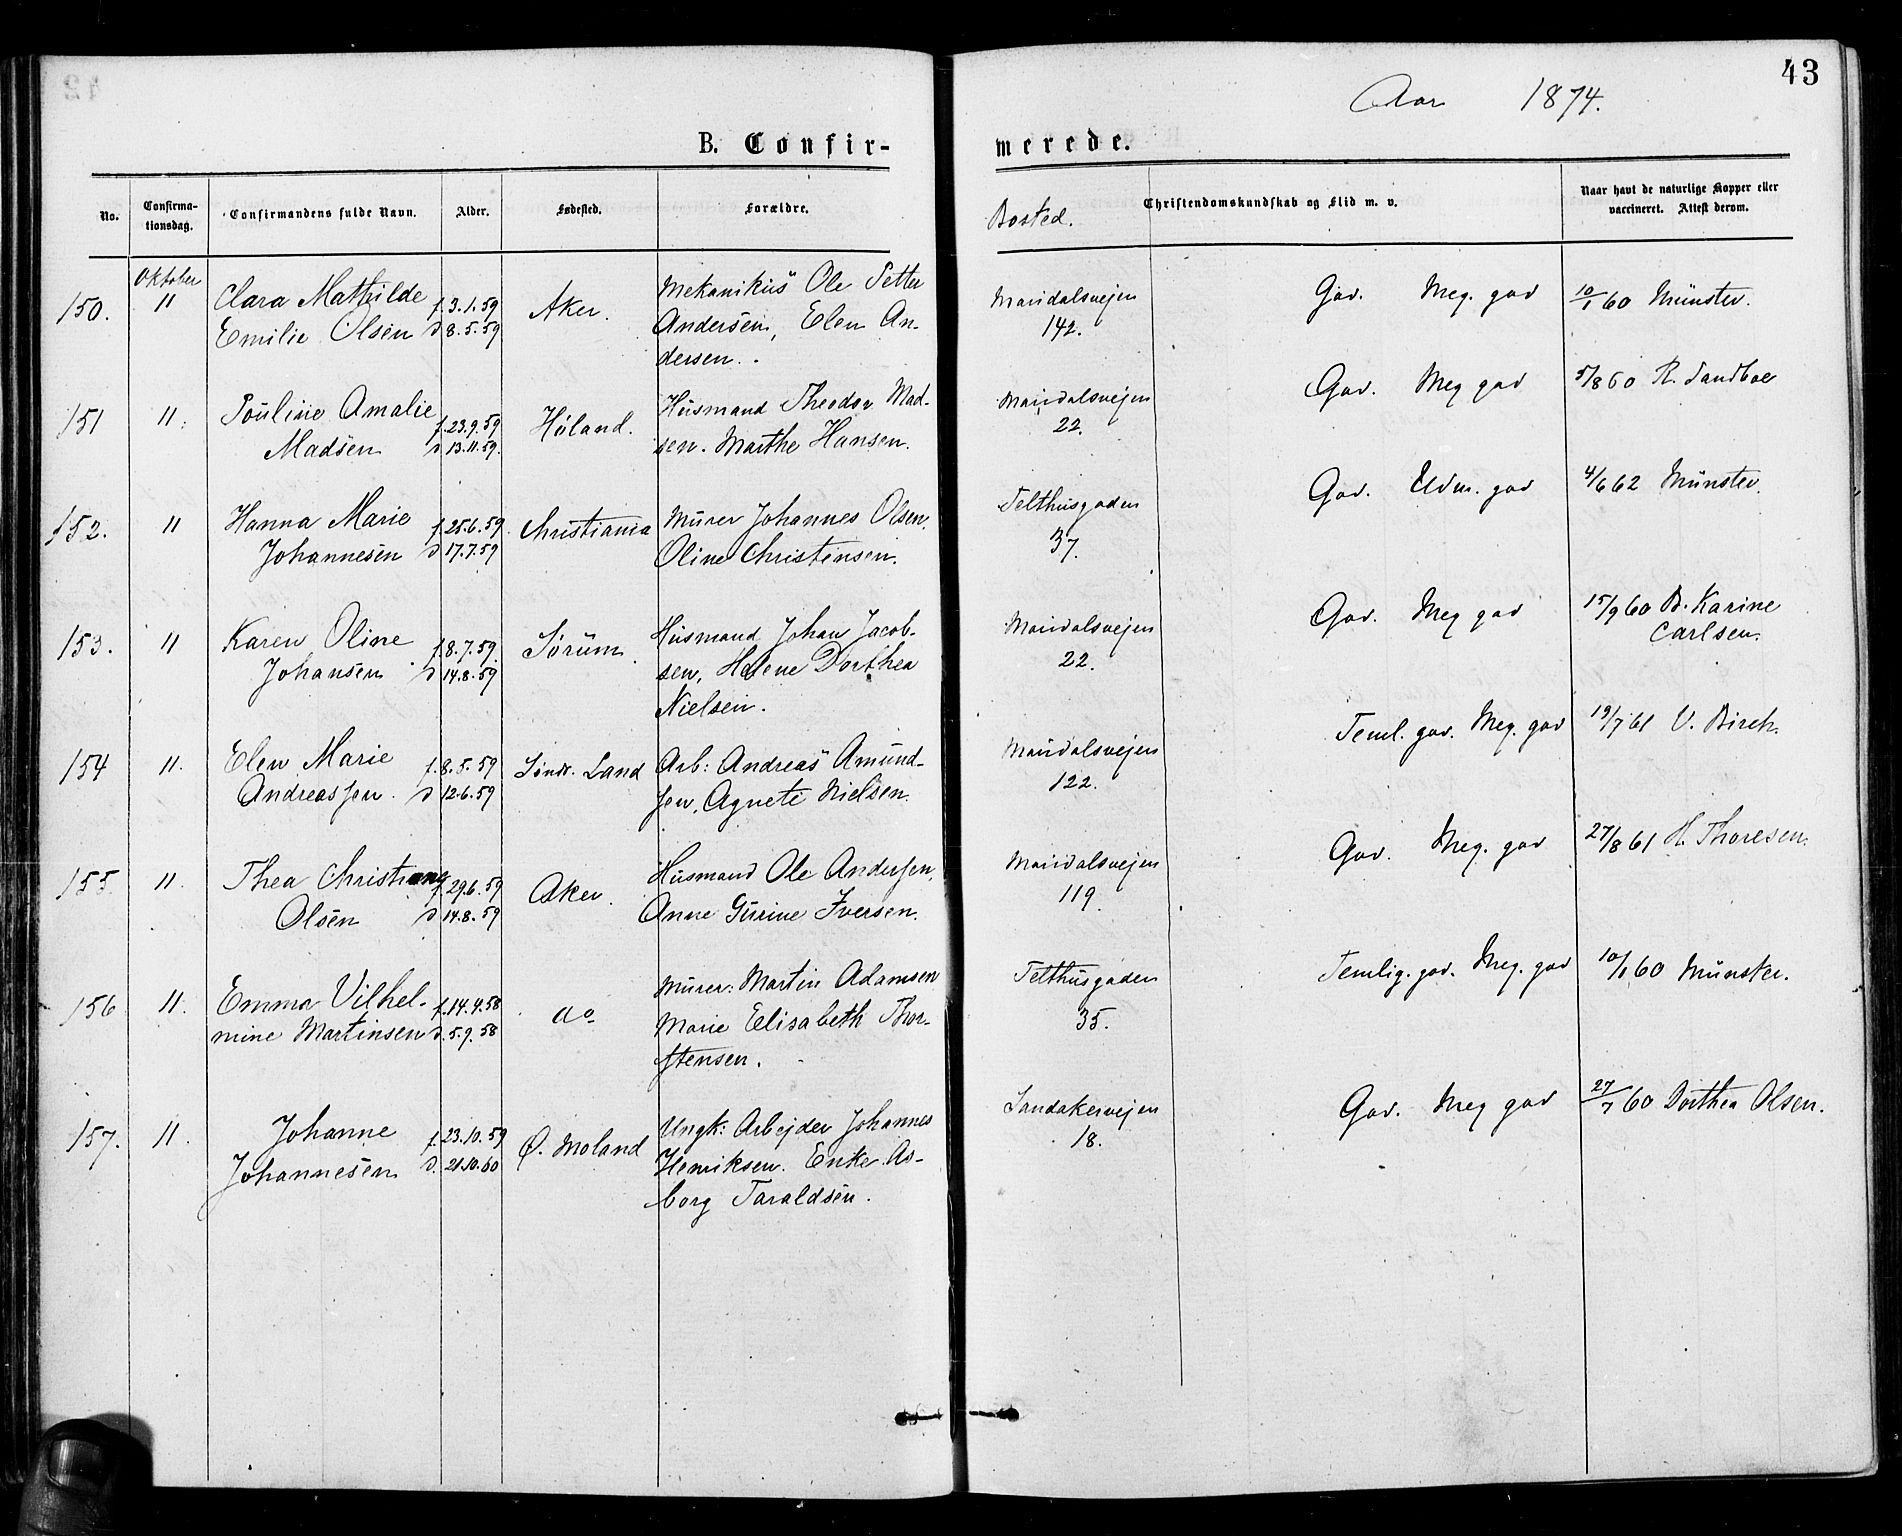 43
Aar 1874.
B. Confir-
merede.
No.
Confirma-
tionsdag.
Confirmandens fulde Navn.
Alder.
Fødested.
Forældre.
Bosted.
Christendomskundskab og Flid m. v.
Naar havt de naturlige Kopper eller
vaccineret. Attest derom.
Oktober
150. 11 Clara Mathilde
Emilie Olsen
f. 3.1.59
d 8.5.59
Aker.
Mekanikus Ole Petter
Andersen, Elen An-
dersen.
Maridalsvejen
142.
God. Meg. god
10/1 60 Münster.
151 11. Pouline Amalie
Madsen
f. 23.9.59
d 13.11.59.
Høland.
Husmand Theodor Mad-
sen. Marthe Hansen.
Maridalsvejen
22.
God. Meg god
5/8 60 R. Sandboe
152. 11 Hanna Marie
Johannesen
f. 25.6.59
d 17.7.59
Christiania
Murer Johannes Olsen.
Oline Christensen.
Telthusgaden
37.
God. Udm. god
4/6 62 Münster.
153. 11 Karen Oline
Johansen
f. 8.7.59
d 14.8.59
Sørum.
Husmand Johan Jacob-
sen, Helene Dorthea
Nielsen.
Maridalsvejen
22.
God. Meg god
15/9 60 B. Karine
Carlsen.
154 11. Elen Marie
Andreassen.
f. 8.5.59
d 12.6.59
Søndr. Land
Arb: Andreas Amund-
sen, Agnete Nielsen.
Maridalsvejen
122.
Teml. god. Meg. god
19/7 61 V. Birch.
155. 11. Thea Christiane
Olsen
f. 29.6.59
d 14.8.59
Aker.
Husmand Ole Andersen,
Anne Gurine Iversen.
Maridalsvejen
119.
God. Meg. god
27/8 61 H. Thoresen.
156 11. Emma Vilhel-
mine Martinsen
f. 14.4.58
d. 5.9.58
do
Murer: Martin Adamsen
Marie Elisabeth Thor-
stensen.
Telthusgaden
35.
Temlig. god. Meg. god
10/1 60 Münster.
157. 11. Johanne
Johannesen
f. 23.10.59
d. 21.10.60
Ø. Moland
Ungk: Arbejder Johannes
Henriksen. Enke As-
borg Taraldsen.
Sandakervejen
18.
God. Meg god
27/7 60 Dorthea Olsen.